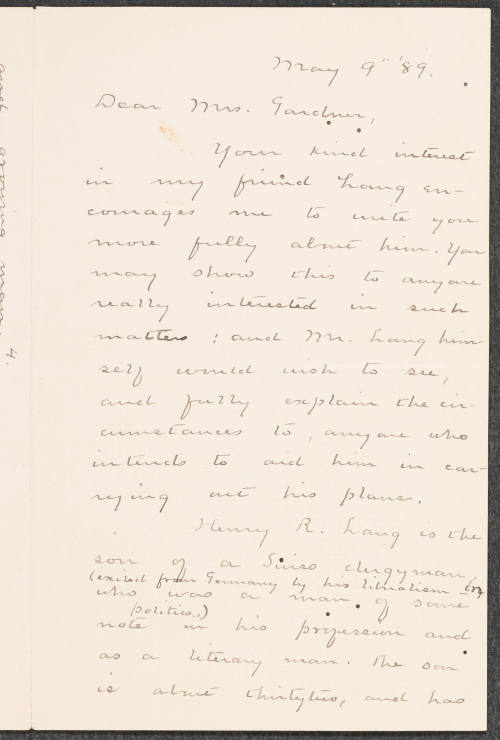 May 9" '89.
Dear Mrs. Gardner,
Your kind interest
in my friend Lang en-
courages me to write you
more fully about him. You
may show this to anyone
really interested in such
matters; and Mr. Lang him
self would wish to see,
and fully explain the cir-
cumstances to, anyone who
intends to aid him in car-
rying out his plans.
Henry R. Lang is the
son of a Swiss clergyman,
(exiled from Germany by his liberalism in
who was a man of some
politics,)
note in his profession and
as a literary man. The son
is about thirtytwo, and has